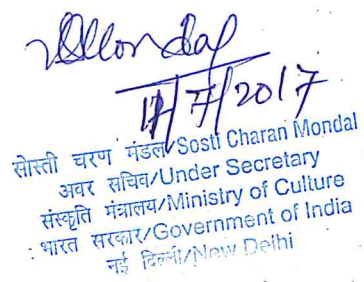 Mondal
17/7/2017
सोस्ती चरण मंडल/Sosti Charan Mondal
अवर सचिव/Under Secretary
संस्कृति मंत्रालय/Ministry of Culture
भारत सरकार/Government of India
नई दिल्ली/New Delhi